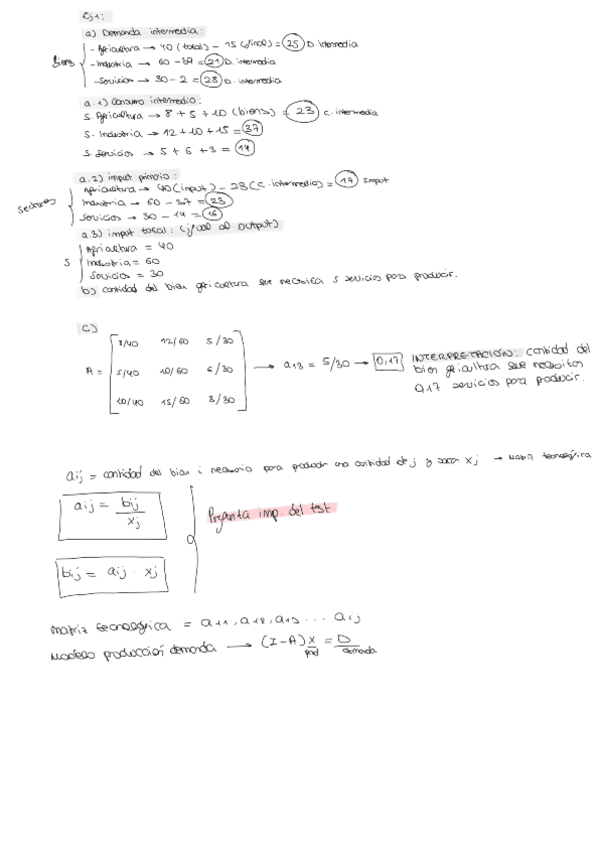 Ej1:
a) Demanda intermedia:
Bienes
- Agricultura → 40 (total) - 15 (final) = 25 D. intermedia
- Industria → 60 - 39 = 21 D. intermedia
- Servicios → 30 - 2 = 28 D. intermedia
a.1) Consumo intermedio:
S. Agricultura → 8 + 5 + 10 (bienes) = 23 C. intermedia
S. Industria → 12 + 10 + 15 = 37
S. Servicios → 5 + 6 + 3 = 14
a.2) input primario:
Sectores
Agricultura → 40 (input) - 23 (C. intermedio) = 17 Input
Industria → 60 - 37 = 23
Servicios → 30 - 14 = 16
a.3) input total: (igual al output)
S
Agricultura = 40
Industria = 60
Servicios = 30
b) cantidad del bien agricultura que necesita S servicios para producir.
c)
A =
8/40 12/60 5/30
5/40 10/60 6/30
10/40 15/60 3/30
→ a13 = 5/30 → 0,17 → INTERPRETACIÓN: cantidad del
bien agricultura que necesitas
0,17 servicios para producir.
aij = cantidad del bien i necesario para producir una cantidad de j y sacar xj → Matriz tecnológica
aij = bij / xj
Pregunta imp. del test
bij = aij · xj
matriz tecnológica = a11, a12, a13 ... aij
Modelo producción demanda → (I-A) X = D
prod demanda